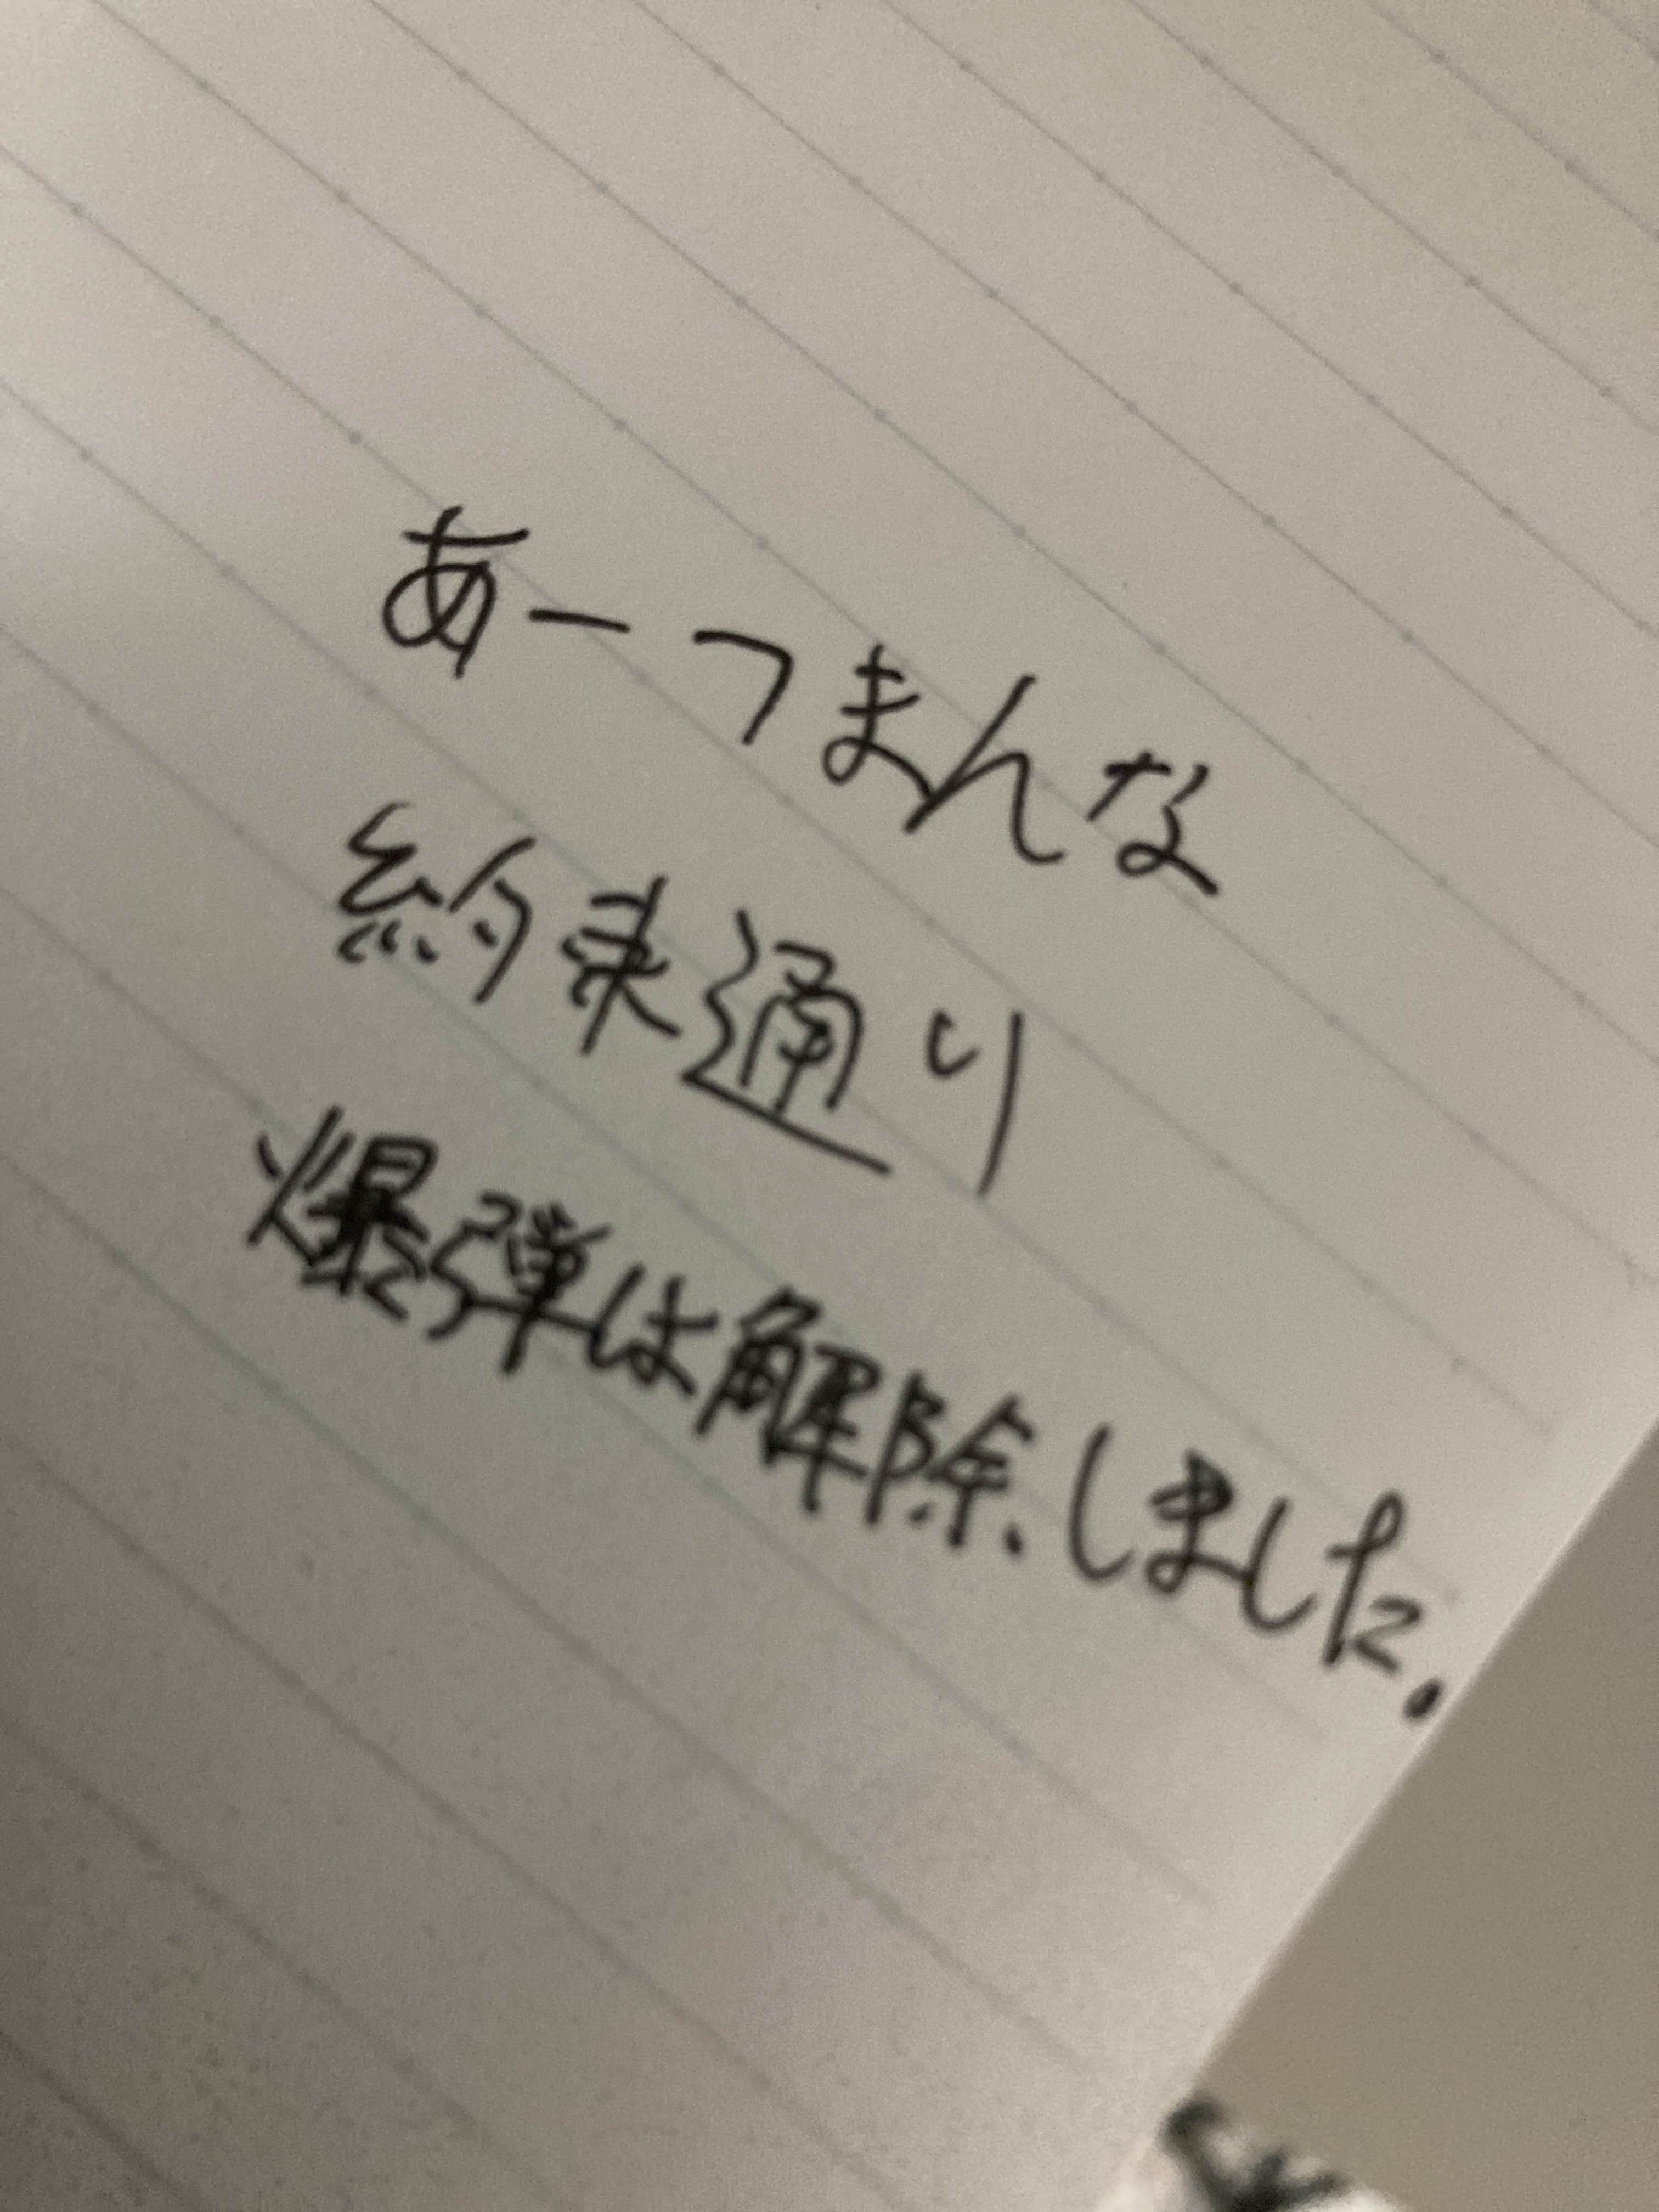 あーつまんな
約束通り
爆弾は解除しました.